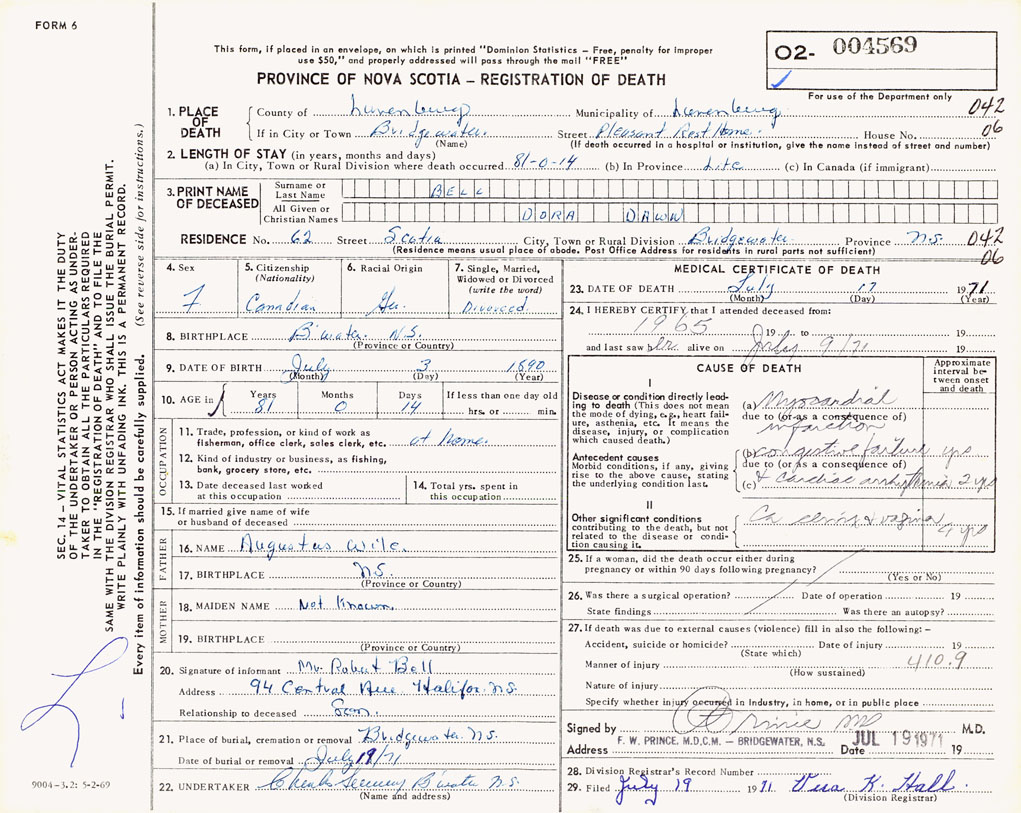 FORM 6
This form, if placed in an envelope, on which is printed "Dominion Statistics – Free, penalty for improper
use $50," and properly addressed will pass through the mail "FREE"
PROVINCE OF NOVA SCOTIA – REGISTRATION OF DEATH
O2- 004569
For use of the Department only
1. PLACE OF DEATH County of Lunenburg Municipality of Lunenburg 042
If in City or Town Bridgewater Street Pleasant Rest Home House No. 06
(Name) (If death occurred in a hospital or institution, give the name instead of street and number)
2. LENGTH OF STAY (in years, months and days)
(a) In City, Town or Rural Division where death occurred 81-0-14 (b) In Province Life (c) In Canada (if immigrant)
3. PRINT NAME OF DECEASED Surname or Last Name BELL
All Given or Christian Names DORA DAWN
RESIDENCE No. 62 Street Scotia City, Town or Rural Division Bridgewater Province N.S. 042
(Residence means usual place of abode. Post Office Address for residents in rural parts not sufficient) 06
4. Sex F
5. Citizenship (Nationality) Canadian
6. Racial Origin Ger.
7. Single, Married, Widowed or Divorced (write the word) Divorced
8. BIRTHPLACE B'water N.S.
(Province or Country)
9. DATE OF BIRTH July 3 1890
(Month) (Day) (Year)
10. AGE in Years 81 Months 0 Days 14 If less than one day old hrs. or min.
OCCUPATION
11. Trade, profession, or kind of work as
fisherman, office clerk, sales clerk, etc. at Home.
12. Kind of industry or business, as fishing,
bank, grocery store, etc.
13. Date deceased last worked
at this occupation
14. Total yrs. spent in
this occupation
15. If married give name of wife
or husband of deceased
FATHER
16. NAME Augustus Wile
17. BIRTHPLACE N.S.
(Province or Country)
MOTHER
18. MAIDEN NAME Not Known
19. BIRTHPLACE
(Province or Country)
20. Signature of informant Mr. Robert Bell
Address 94 Central Ave Halifax N.S.
Relationship to deceased Son.
21. Place of burial, cremation or removal Bridgewater N.S.
Date of burial or removal July 19/71
22. UNDERTAKER B'water N.S.
(Name and address)
MEDICAL CERTIFICATE OF DEATH
23. DATE OF DEATH July 17 1971
(Month) (Day) (Year)
24. I HEREBY CERTIFY that I attended deceased from:
1965 19 to 19
and last saw her alive on July 9/71 19
CAUSE OF DEATH
Approximate interval between onset and death
I
Disease or condition directly leading to death (This does not mean the mode of dying, e.g., heart failure, asthenia, etc. It means the disease, injury, or complication which caused death.)
(a) Myocardial
due to (or as a consequence of)
infarction
Antecedent causes
Morbid conditions, if any, giving rise to the above cause, stating the underlying condition last.
(b) congestive failure yrs
due to (or as a consequence of)
(c) & cardiac arrhythmia 2 yrs
II
Other significant conditions contributing to the death, but not related to the disease or condition causing it.
Ca cervix & vagina yrs
25. If a woman, did the death occur either during
pregnancy or within 90 days following pregnancy?
(Yes or No)
26. Was there a surgical operation? Date of operation 19
State findings Was there an autopsy?
27. If death was due to external causes (violence) fill in also the following: –
Accident, suicide or homicide? Date of injury 19
(State which)
Manner of injury 410.9
(How sustained)
Nature of injury
Specify whether injury occured in industry, in home, or in public place
Signed by Prince MD M.D.
F. W. PRINCE, M.D.C.M. – BRIDGEWATER, N.S. JUL 19 1971
Address Date 19
28. Division Registrar's Record Number
29. Filed July 19 1971 Vera K. Hall
(Division Registrar)
SEC. 14 – VITAL STATISTICS ACT MAKES IT THE DUTY
OF THE UNDERTAKER OR PERSON ACTING AS UNDER-
TAKER TO OBTAIN ALL THE PARTICULARS REQUIRED
IN THE "REGISTRATION OF DEATH" AND TO FILE THE
SAME WITH THE DIVISION REGISTRAR WHO SHALL ISSUE THE BURIAL PERMIT.
WRITE PLAINLY WITH UNFADING INK. THIS IS A PERMANENT RECORD.
Every item of information should be carefully supplied. (See reverse side for instructions.)
9004-3.2: 5-2-69